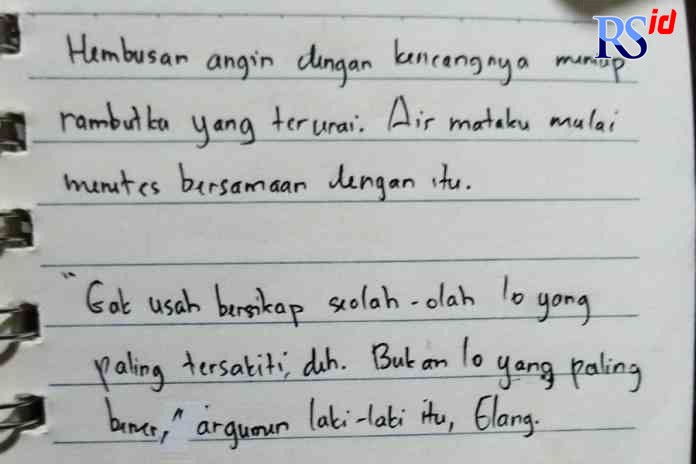 RSid
Hembusan angin dengan kencangnya meniup
rambutku yang terurai. Air mataku mulai
menetes bersamaan dengan itu.
"Gak usah bersikap seolah-olah lo yang
paling tersakiti, deh. Bukan lo yang paling
bener," argumen laki-laki itu, Elang.